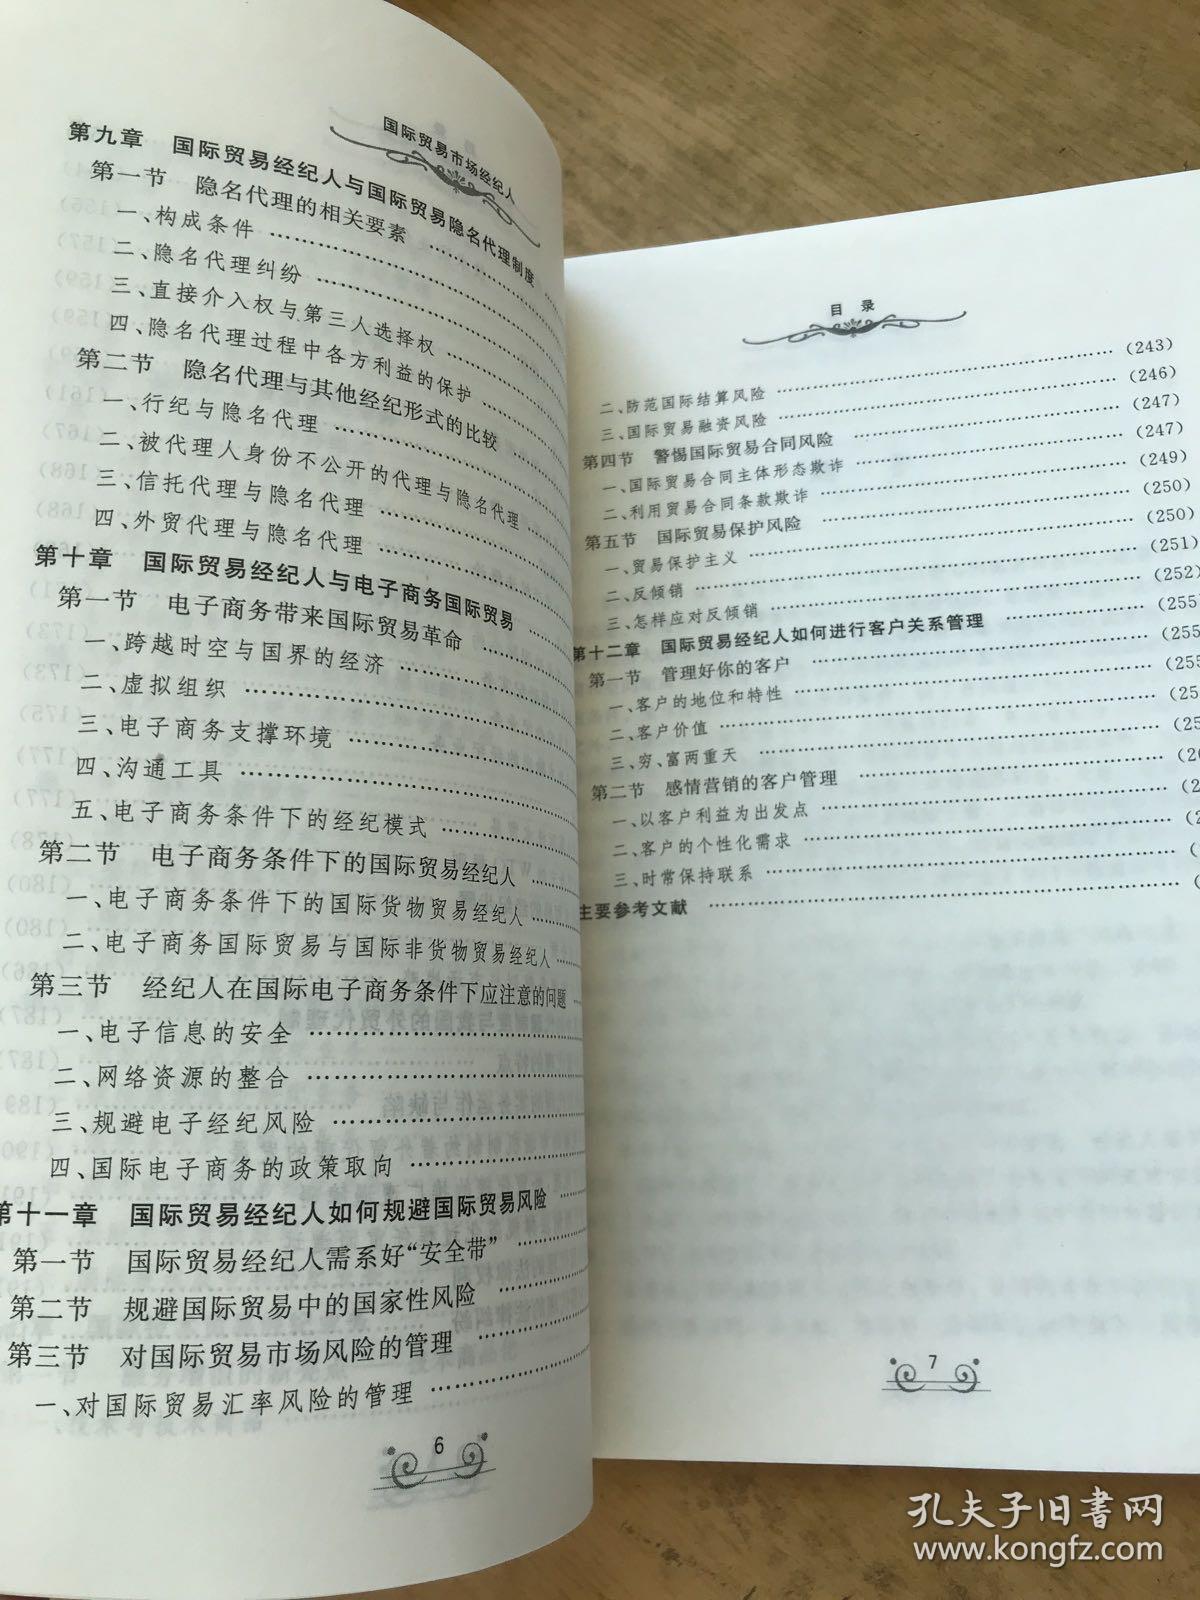 国际贸易市场经纪人
第九章 国际贸易经纪人与国际贸易隐名代理制度 ……
第一节 隐名代理的相关要素 ……
一、构成条件 ……
二、隐名代理纠纷 ……
三、直接介入权与第三人选择权 ……
四、隐名代理过程中各方利益的保护 ……
第二节 隐名代理与其他经纪形式的比较 ……
一、行纪与隐名代理 ……
二、被代理人身份不公开的代理与隐名代理 ……
三、信托代理与隐名代理 ……
四、外贸代理与隐名代理 ……
第十章 国际贸易经纪人与电子商务国际贸易 ……
第一节 电子商务带来国际贸易革命 ……
一、跨越时空与国界的经济 ……
二、虚拟组织 ……
三、电子商务支撑环境 ……
四、沟通工具 ……
五、电子商务条件下的经纪模式 ……
第二节 电子商务条件下的国际贸易经纪人 ……
一、电子商务条件下的国际货物贸易经纪人 ……
二、电子商务国际贸易与国际非货物贸易经纪人 ……
第三节 经纪人在国际电子商务条件下应注意的问题 ……
一、电子信息的安全 ……
二、网络资源的整合 ……
三、规避电子经纪风险 ……
四、国际电子商务的政策取向 ……
第十一章 国际贸易经纪人如何规避国际贸易风险 ……
第一节 国际贸易经纪人需系好“安全带” ……
第二节 规避国际贸易中的国家性风险 ……
第三节 对国际贸易市场风险的管理 ……
一、对国际贸易汇率风险的管理 ……
6
目 录
二、防范国际结算风险 ……(243)
三、国际贸易融资风险 ……(246)
第四节 警惕国际贸易合同风险 ……(247)
一、国际贸易合同主体形态欺诈 ……(247)
二、利用贸易合同条款欺诈 ……(249)
第五节 国际贸易保护风险 ……(250)
一、贸易保护主义 ……(250)
二、反倾销 ……(251)
三、怎样应对反倾销 ……(252)
第十二章 国际贸易经纪人如何进行客户关系管理 ……(255)
第一节 管理好你的客户 ……(255
一、客户的地位和特性 ……(255
二、客户价值 ……(25
三、穷、富两重天 ……(25
第二节 感情营销的客户管理 ……(26
一、以客户利益为出发点 ……(2
二、客户的个性化需求 ……(2
三、时常保持联系 ……(
主要参考文献 ……(
7
孔夫子旧书网
www.kongfz.com